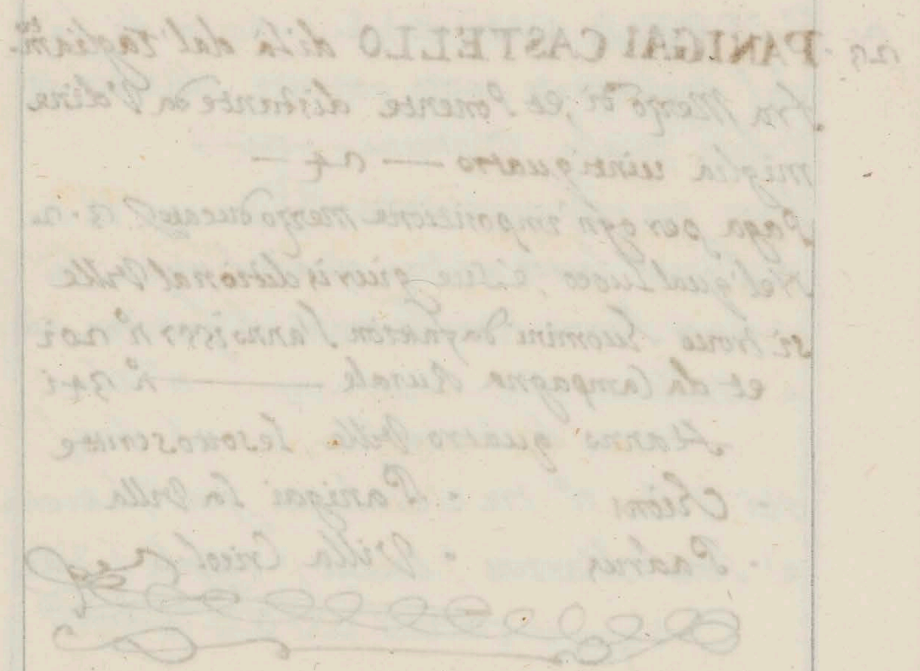 PANIGAI CASTELLO di là dal Tagliam.to
fra Mezo dì, et Ponente distante da Udine
miglia vinti quatro — 24 —
Paga per ogn'imposicione mezo ducato
Nel qual Luoco, e sue giurisdicional Ville
si trova huomini da fation l'anno 1557 n.o 201
et da Campagna Rurale — n.o 341
Hanno quatro Ville le sottoscritte
Chions · Panigai la Villa
· Villa